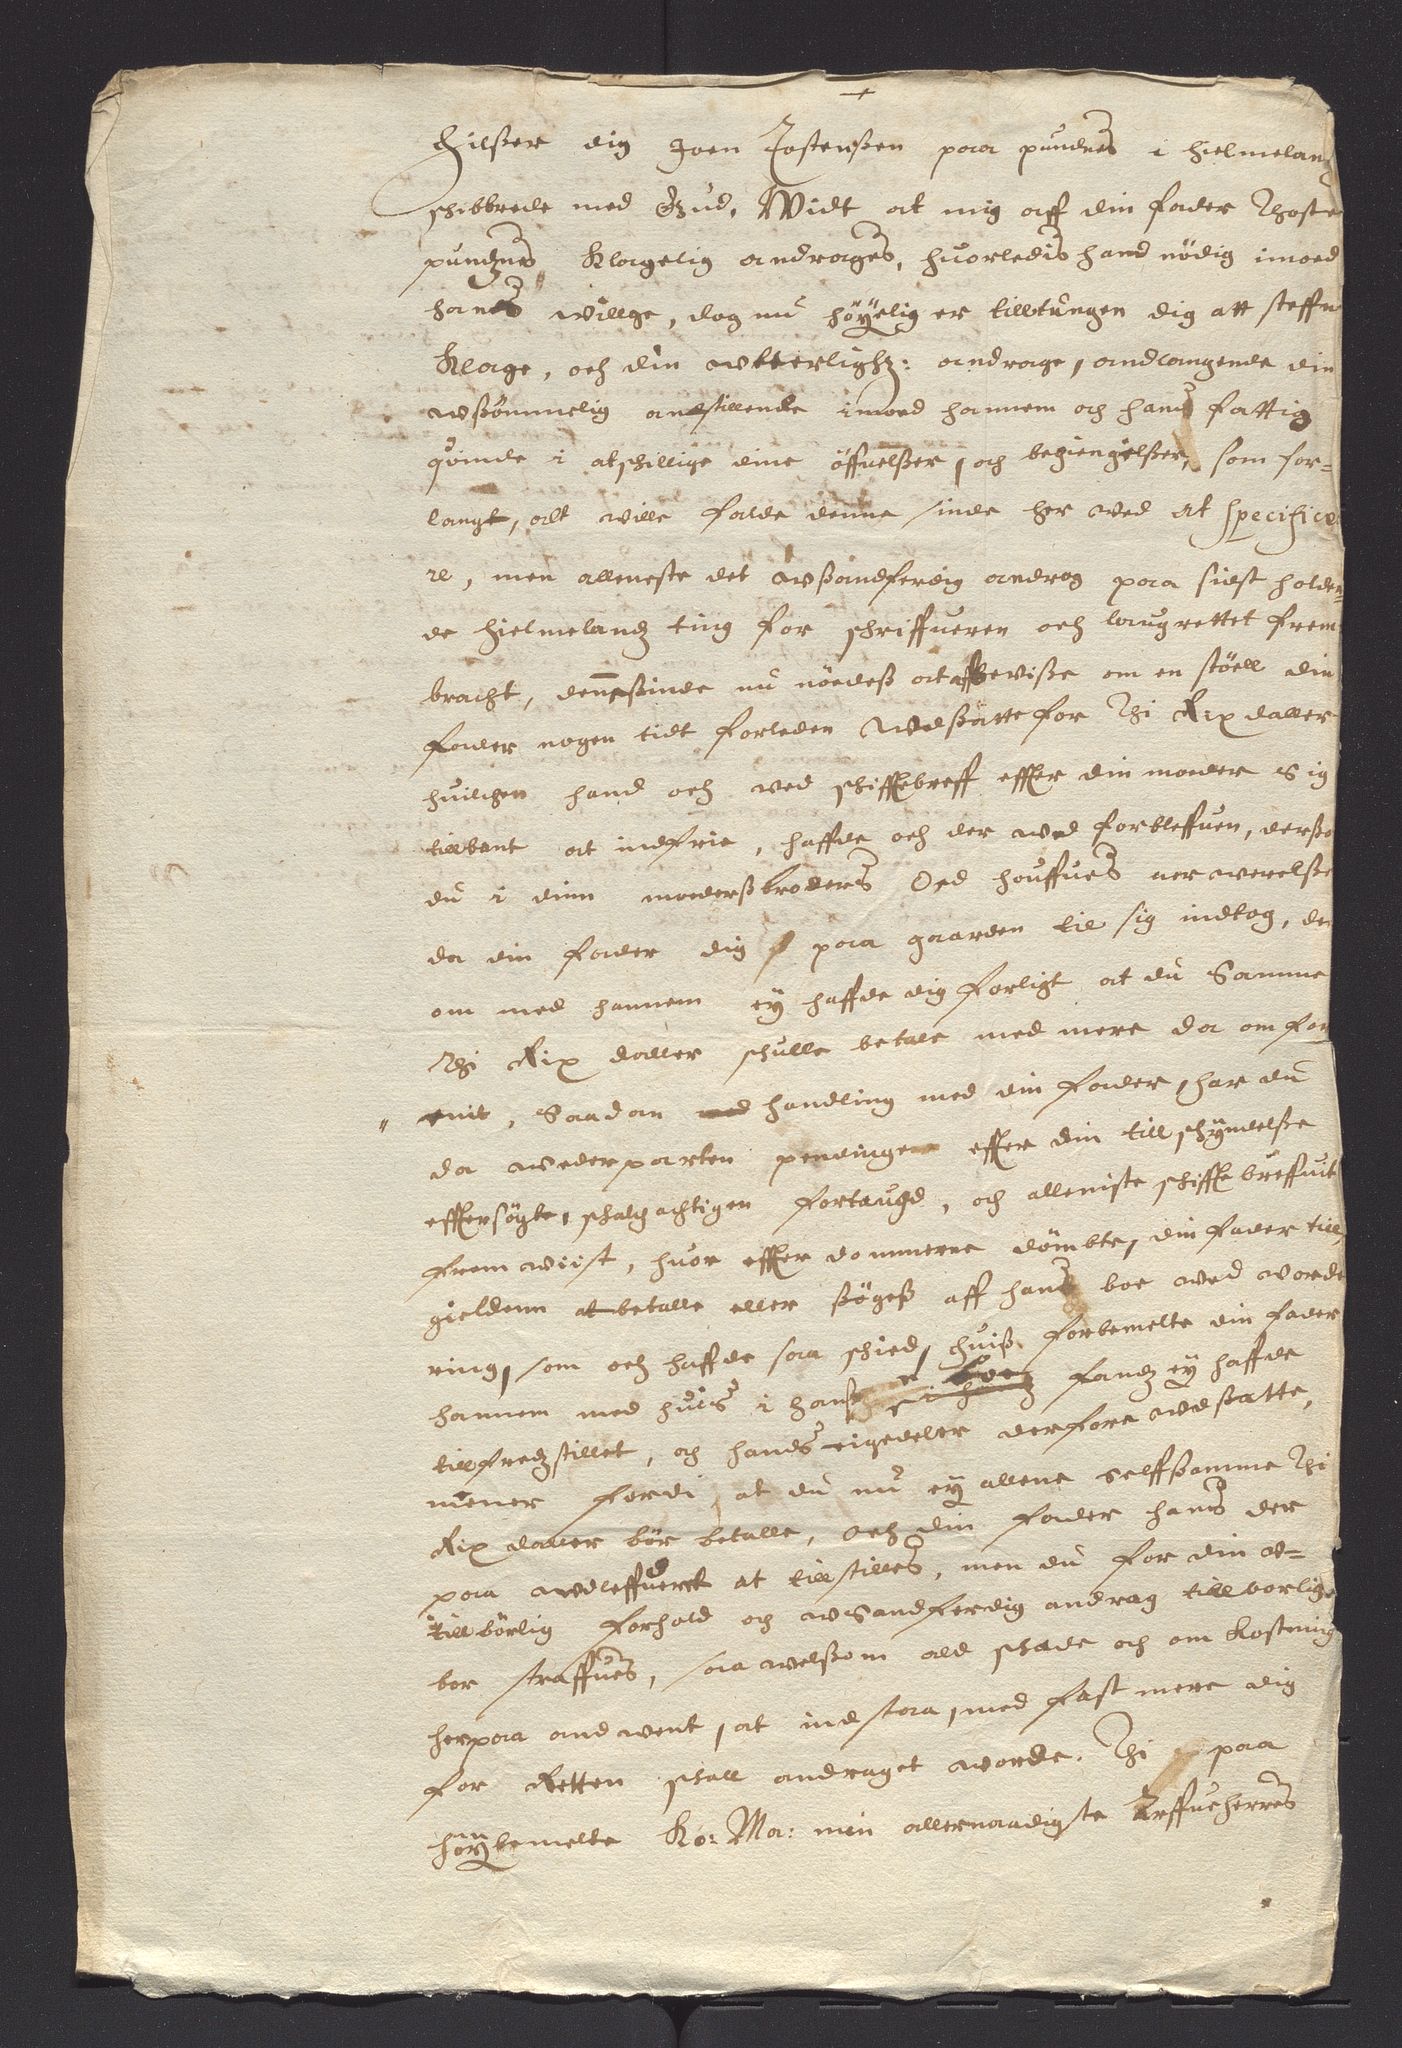 Hilßer dig Joen Tostenßen paa pundnes i hielmeland
schibbrede med Gud, Widt at mig aff din fader Thoste
pundznes klagelig andrages, huorledis hand nödig imoed
hanes willge, dog nu höÿelig er tilltungen dig att steffne
klage, och din wkterlighz: andrage, andlangende din
wßömmelig andstillende imoed hannem och hans fattig
quinde i atschillige dine öffuelßer, och begiengelßer, som for-
langt, alt wille falde denne sinde her wed at specifice
re, men alleneste det wßandferdig andrag paa sidst holden-
de hielmelandz ting for schriffueren och laugrettet frem-
bracht, denneßinde nu nöedeß at affbeviße om en stöell din
fader nogen tidt forleden wdßatte for Thi Rixdaller
huilchen hand och wed schifftebreff effter din moeder sig
tillbant at indfrie, haffde och der wed forbleffuen, derßo
du i dinn moederßbroders Oed houffues nerwerelße
da din fader dig paa gaarden til sig indtog, der
om med hannem eÿ haffde dig forligt at du Samme
Thi Rix daller schulle betale med mere da om for
enit, Saadan handling med din fader, har du
da wederparten pendinge effter din tillschÿndelße
efftersögte, schalchactigen fortaugd, och alleniste schifftebreffuit
fremwiist, huor effter dommerne dömbte, din fader till
gieldenn at betalle eller ßögeß aff hans boe wed worde
ring, som och haffde saa schied, huiß forbemelte din fader
hannem med huis i hanß fandz eÿ haffde
tillfredzstillet, och hands eigedeler derfore wdsatte,
mener fordi at du nu eÿ allene selffsamme Thi
Rix daller bör betalle, och din fader hans der
paa wdleffuert at tillstilles, men du for din w-
tillbörlig forhold och wsandferdig andrag tillborlige
bor straffues, saawelßom ald schade och om kostning
herpaa andwent, at indstaa, med fast mere dig
for Retten schall andraget worde. Thi paa
höÿbemelte Ko: Ma: min allernaadigste Arffueherres